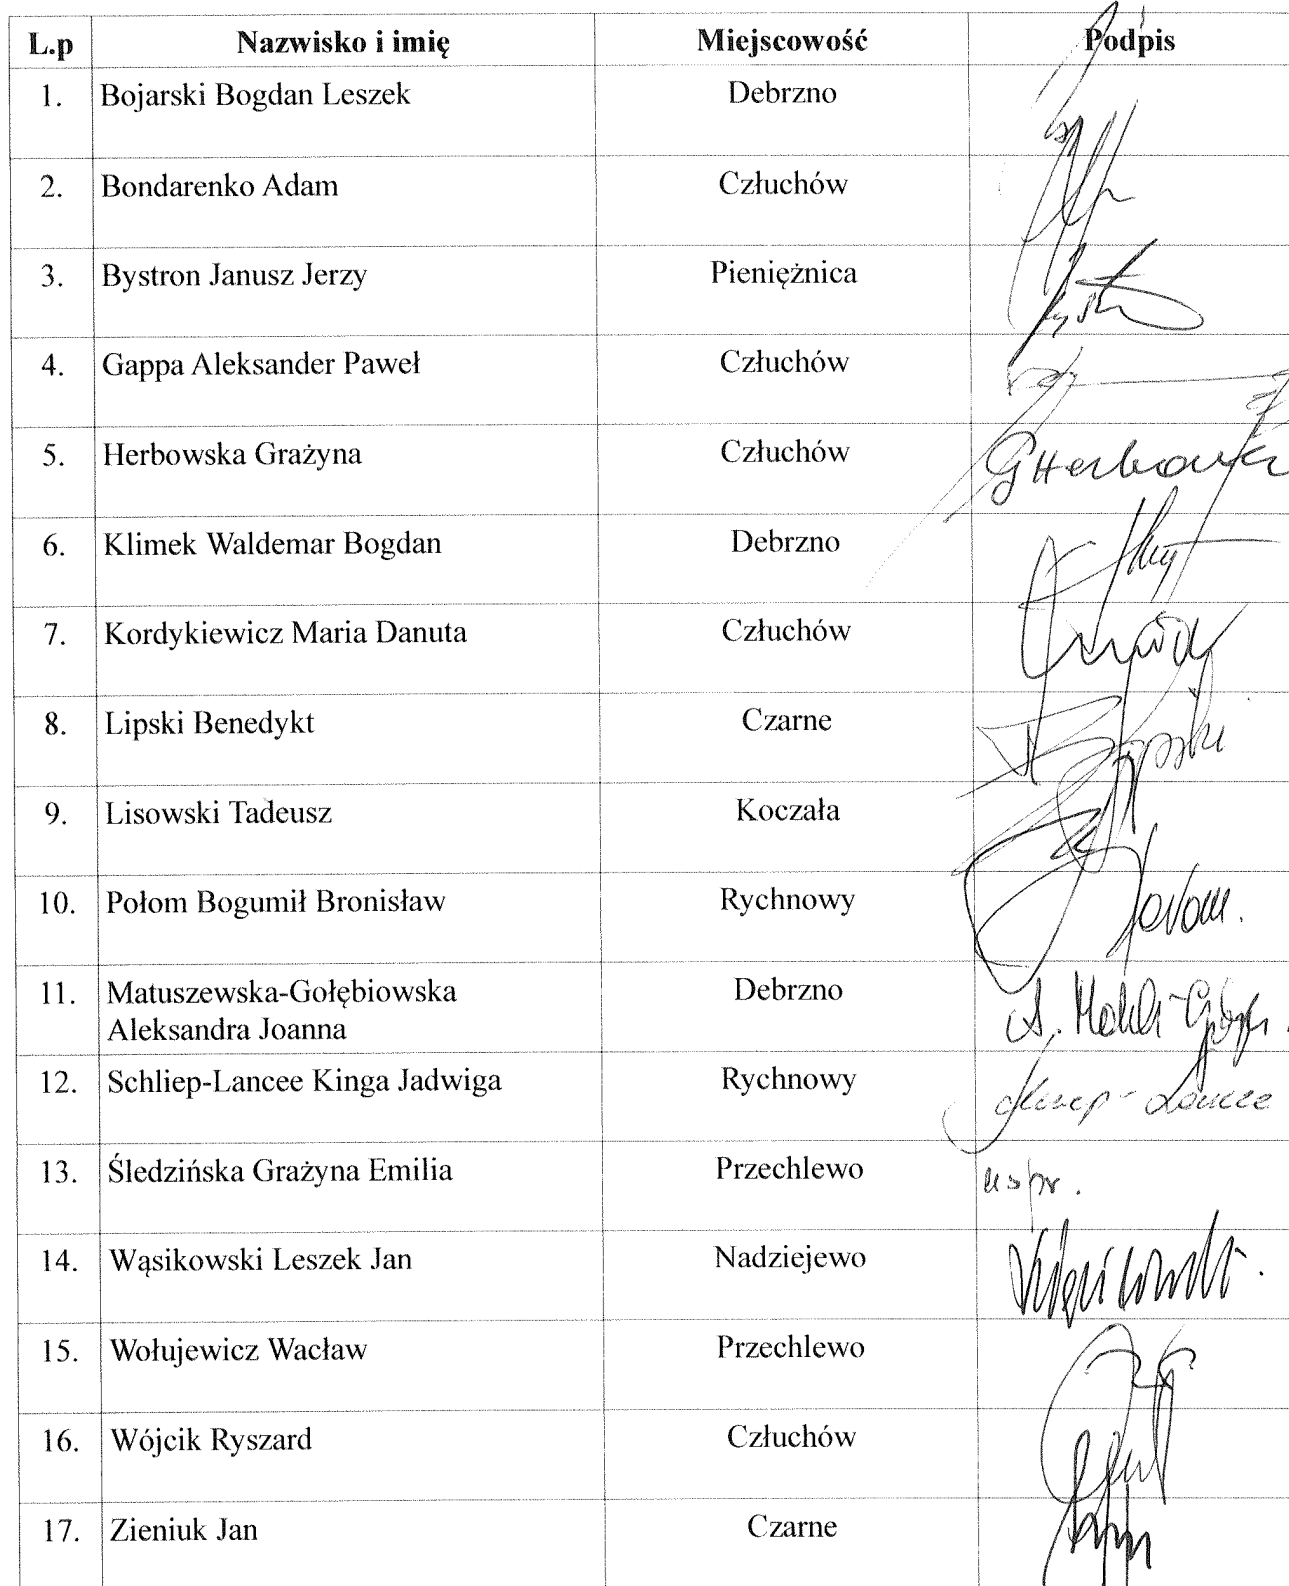 L.p Nazwisko i imię Miejscowość Podpis
1. Bojarski Bogdan Leszek Debrzno
2. Bondarenko Adam Człuchów
3. Bystron Janusz Jerzy Pieniężnica
4. Gappa Aleksander Paweł Człuchów
5. Herbowska Grażyna Człuchów GHerbowska
6. Klimek Waldemar Bogdan Debrzno
7. Kordykiewicz Maria Danuta Człuchów
8. Lipski Benedykt Czarne Lipski
9. Lisowski Tadeusz Koczała
10. Połom Bogumił Bronisław Rychnowy Połom.
11. Matuszewska-Gołębiowska Debrzno
Aleksandra Joanna
12. Schliep-Lancee Kinga Jadwiga Rychnowy Schliep-Lancee
13. Śledzińska Grażyna Emilia Przechlewo uspr.
14. Wąsikowski Leszek Jan Nadziejewo
15. Wołujewicz Wacław Przechlewo
16. Wójcik Ryszard Człuchów
17. Zieniuk Jan Czarne